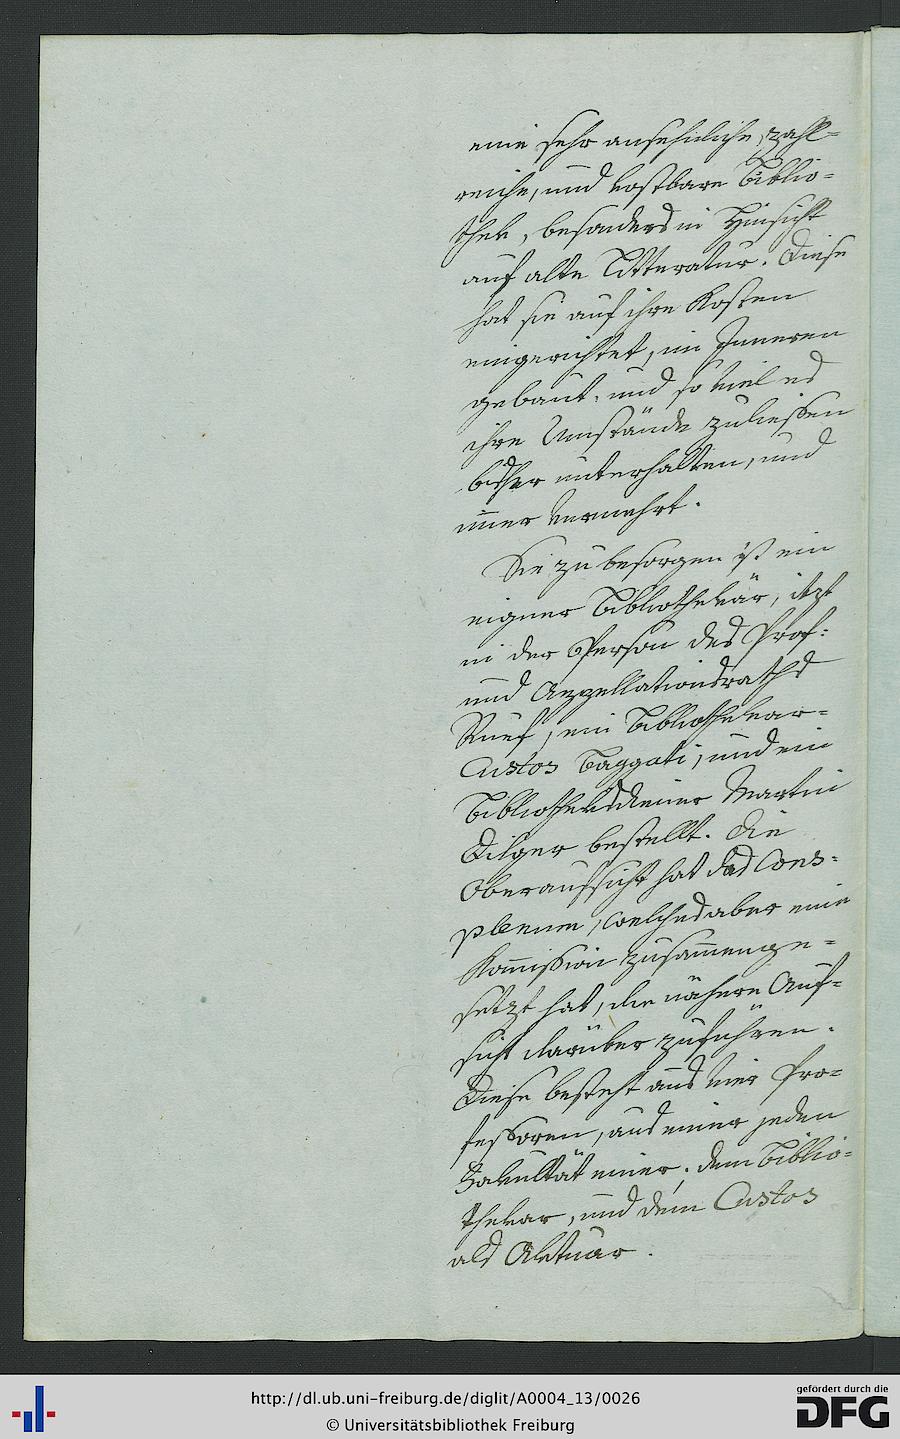 eine sehr ansehnliche, zahl=
reiche, und kostbare Biblio=
thek, besonders in Hinsicht
auf alte Litteratur. Diese
hat sie auf ihre Kosten
eingerichtet, im Inneren
gebaut, und so viel es
ihre Umstände zuliessen
bisher unterhalten, und
imer vermehrt.
Sie zu besorgen ist ein
eigner Bibliothekär, itzt
in der Person des Prof:
und Appellationsraths
Ruef, ein Bibliothekar=
Custos Baggati, und ein
Bibliotheksdiener Martin
Dilger bestellt. Die
Oberaufsicht hat das Cons=
plenum, welches aber eine
Komission zusamenge=
setzt hat, die nähere Auf=
sicht darüber zuführen.
Diese besteht aus vier Pro=
fessoren, aus einer jeden
Fakultät einer, dem Biblio=
thekar, und dem Custos
als Aktuar.
http://dl.ub.uni-freiburg.de/diglit/A0004_13/0026
© Universitätsbibliothek Freiburg
gefördert durch die
DFG